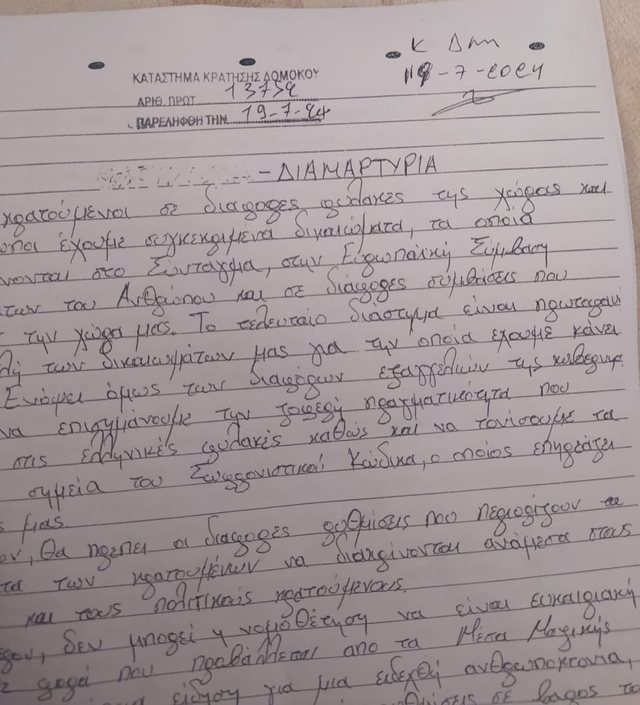 Κ Δημ
19-7-2024
ΚΑΤΑΣΤΗΜΑ ΚΡΑΤΗΣΗΣ ΔΟΜΟΚΟΥ
ΑΡΙΘ. ΠΡΩΤ. 13752
ΠΑΡΕΛΗΦΘΗ ΤΗΝ 19-7-24
-ΔΙΑΜΑΡΤΥΡΙΑ
κρατούμενοι σε διάφορες φυλακές της χώρας και
έχουμε συγκεκριμένα δικαιώματα, τα οποία
νονται στο Σύνταγμα, στην Ευρωπαϊκή Σύμβαση
των του Ανθρώπου και σε διάφορες συμβάσεις που
την χώρα μας. Το τελευταίο διάστημα είναι
των δικαιωμάτων μας για την οποία έχουμε κάνει
Ενόψει όμως των διαφόρων εξαγγελιών της κυβερνησ
να επισημάνουμε την ζοφερή πραγματικότητα που
στις ελληνικές φυλακές καθώς και να τονίσουμε τα
σημεία του Σωφρονιστικού Κώδικα, ο οποίος επηρεάζει
μας.
ον, θα πρέπει οι διάφορες ρυθμίσεις που περιορίζουν τα
τα των κρατουμένων να διακρίνονται ανάμεσα στους
και τους πολιτικούς κρατούμενους.
δεν μπορεί η νομοθέτηση να είναι ευκαιριακή
φορά που προβάλλεται απο τα Μέσα Μαζικής
είδηση για μια ειδεχθή ανθρωποκτονία,
σε βάρος το